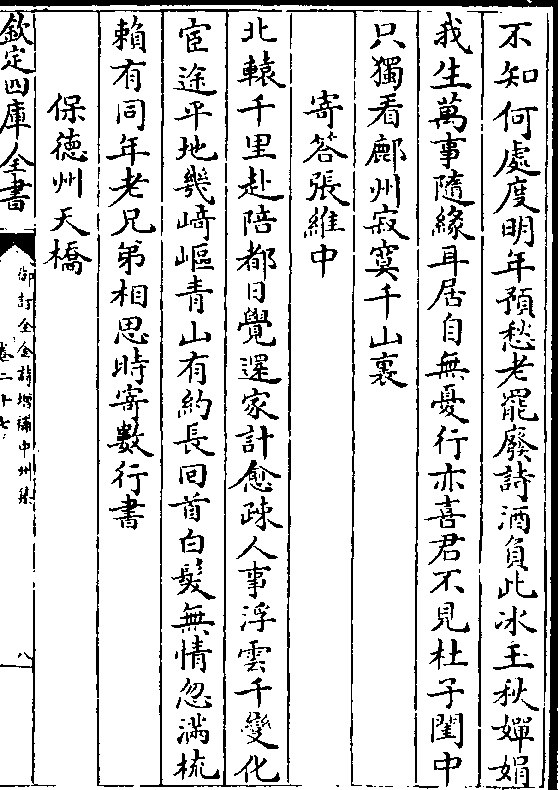 不知何處度明年預愁老罷廢詩酒負此冰玉秋嬋娟
我生萬事隨緣耳居自無憂行亦喜君不見杜子閨中
只獨看鄜州寂寞千山裏
寄答張維中
北轅千里赴陪都日覺還家計愈疎人事浮雲千變化
宦途平地幾崎嶇青山有約長回首白髮無情忽滿梳
賴有同年老兄弟相思時寄數行書
保德州天橋
欽定四庫全書
御訂全金詩增補中州集
卷二十七
八